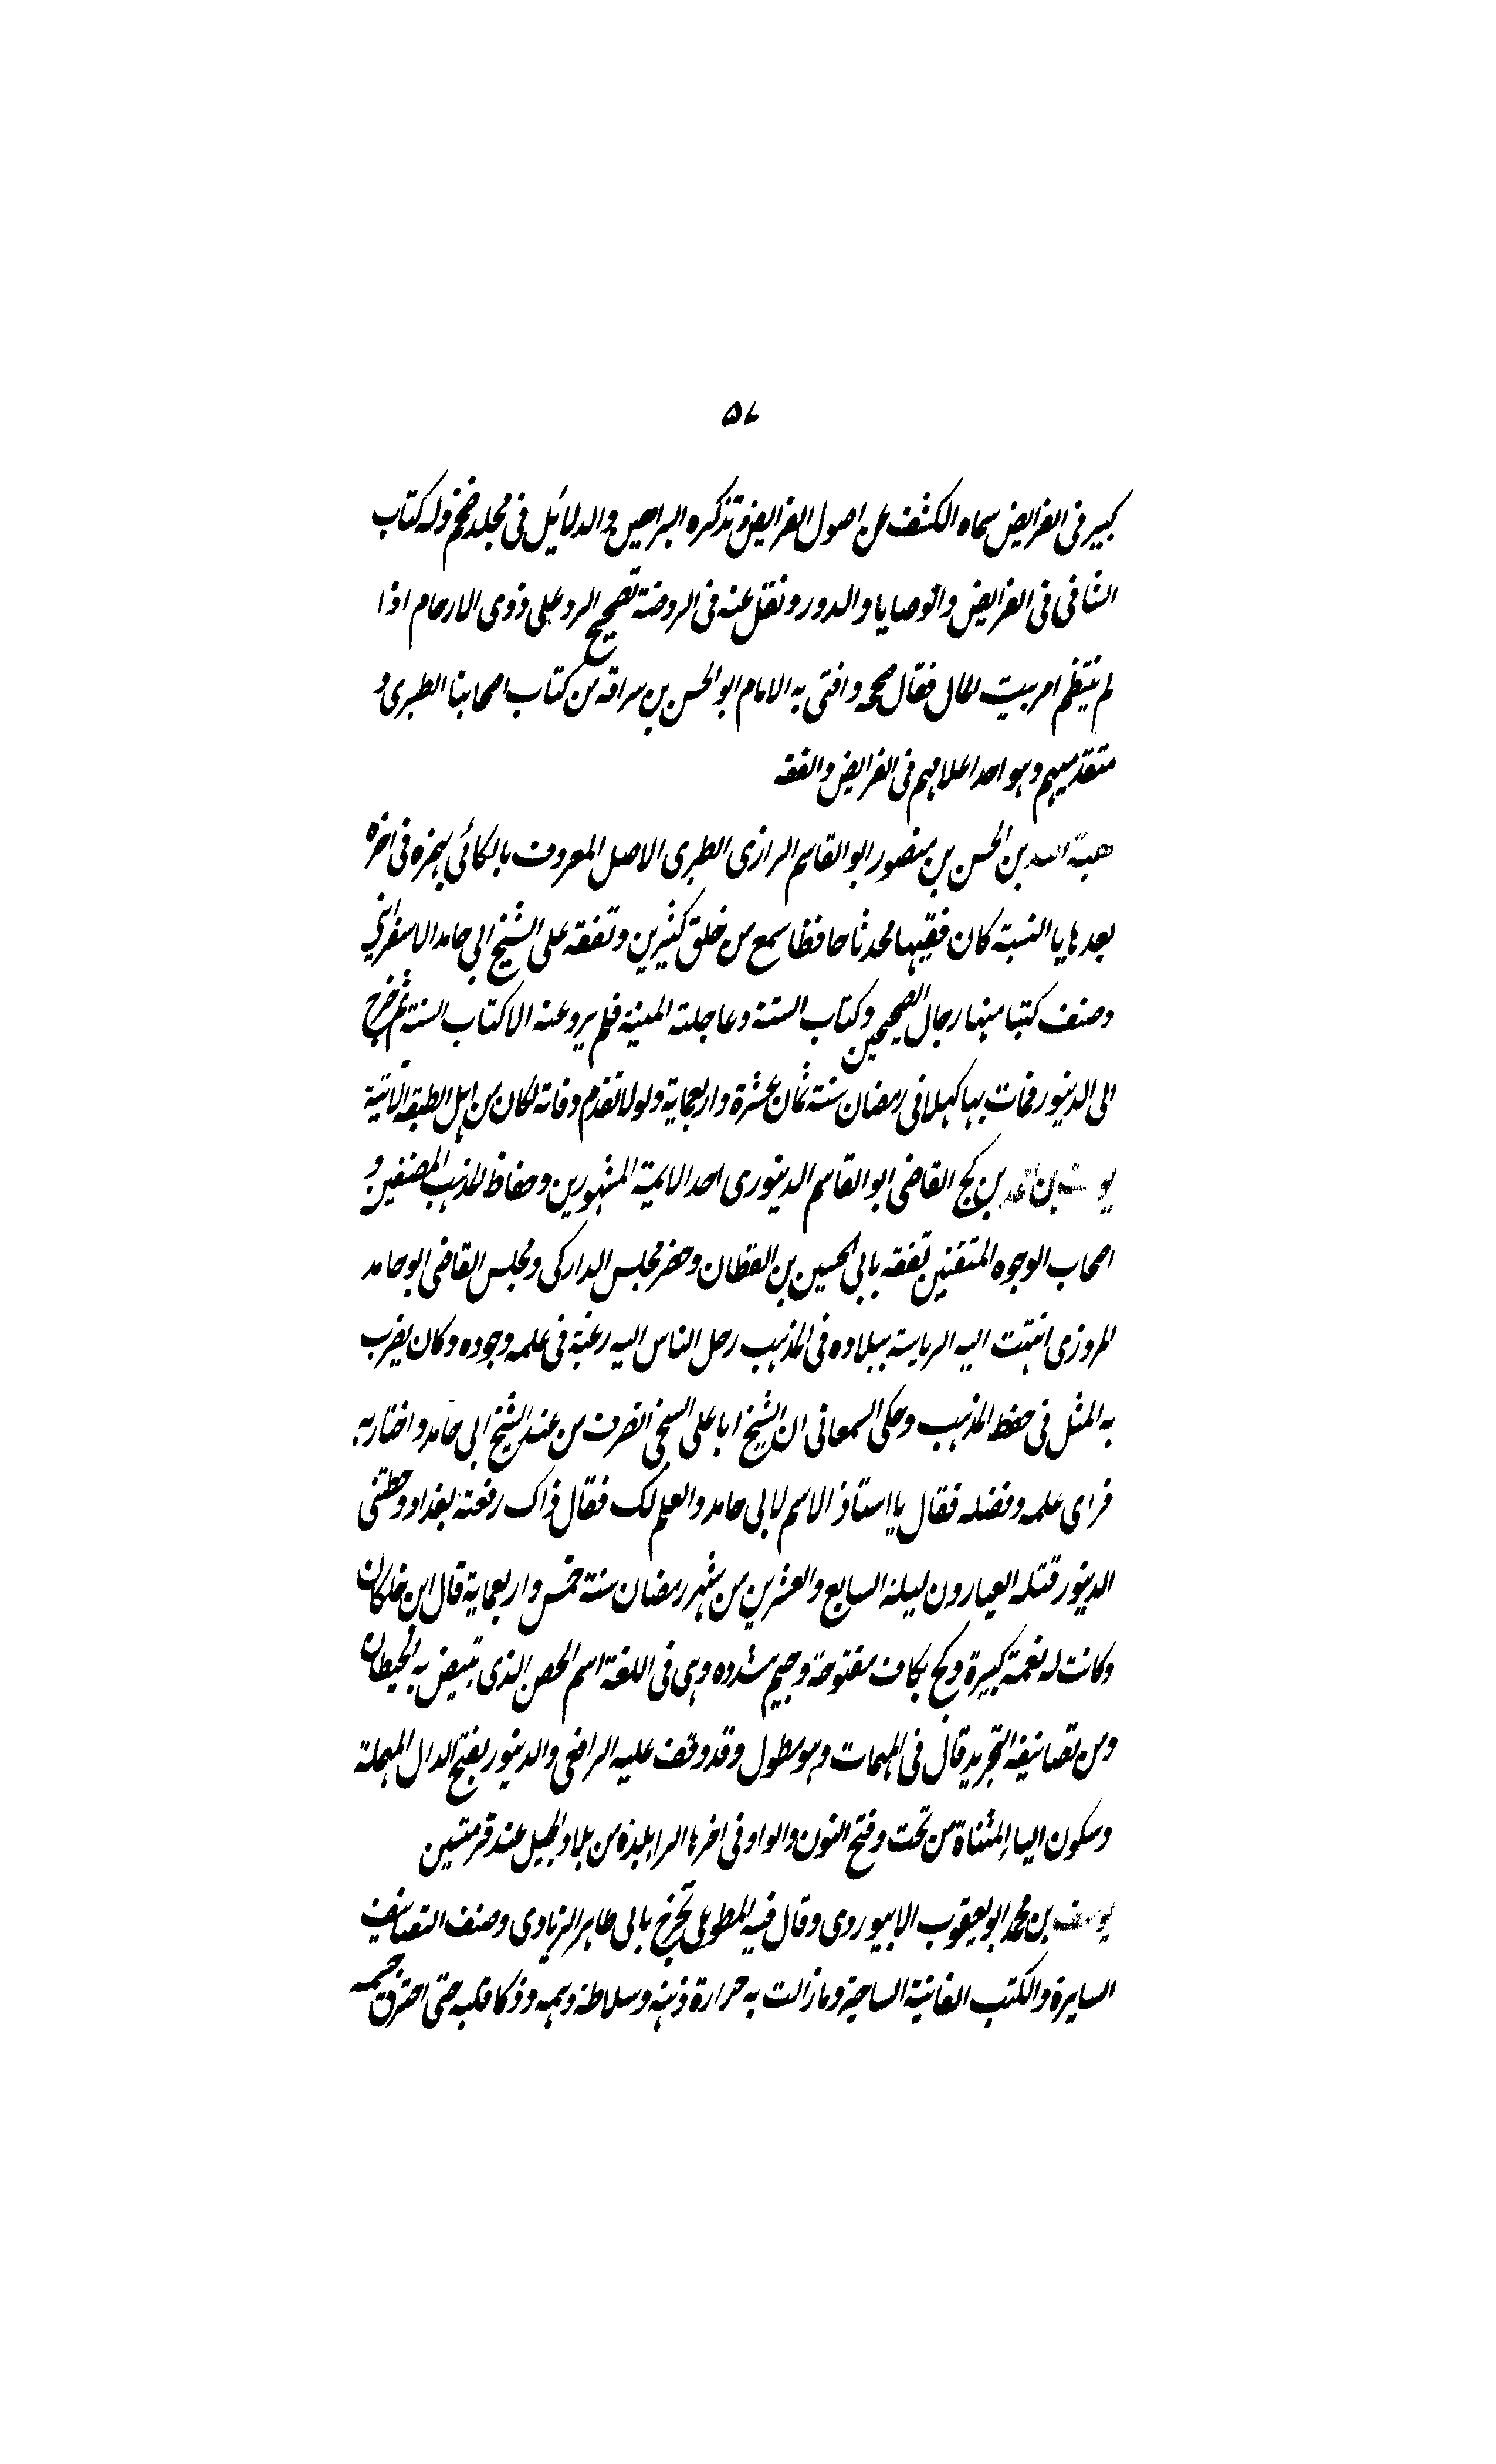 ۵۷
كبير فى الفرايض سماه الكشف عن اصول الفرايض وتذكره البراهين والدلائيل فى مجلد ضخم وله كتاب
الشافى فى الفرايض والوصايا والدور ونقل عنه فى الروضة تصحيح الرد على ذوى الارحام اذا
لم ينتظم امر بيت المال فقال صححه وافتى به الامام ابو الحسن بن سراقه من كتاب اصحابنا الطبرى و
متقدميهم وهو احد اعلامهم فى الفرايض والفقه
هبة الله بن الحسن بن منصور ابو القاسم الرازى الطبرى الاصل المعروف بالكائى بهمزه فى اخره
بعدها يا النسبة كان فقيها محدثا حافظا سمع من خلق كثيرين وتفقه على الشيخ ابى حامد الاسفراينى
وصنف كتبا منها رجال الصحيحين وكتاب السنة وعاجلته المنية فلم يرو عنه الا كتاب السنة ثم خرج
الى الدينور فمات بها كهلا فى رمضان سنة ثمان عشرة واربعماية ولولا تقدم وفاته لكان من اهل الطبقه الاتية
يوسف بن احمد بن كج القاضى ابو القاسم الدينورى احد الايمة المشهورين وحفاظ المذهب المصنفين و
اصحاب الوجوه المتقنين تفقه بابى الحسين بن القطان وحضر مجلس الداركى ومجلس القاضى ابو حامد
المروزى انتهت اليه الرياسة ببلاده فى المذهب رحل الناس اليه رغبة فى علمه وجوده وكان يضرب
به المثل فى حفظ المذهب وحكى السمعانى ان الشيخ ابا على السنجى انصرف من عند الشيخ ابى حامد واختار به
فراى علمه وفضله فقال يا استاذ الاسم لابى حامد والعلم لك فقال ذاك رفعته بغداد وحطتنى
الدينور قتله العيارون ليلة السابع والعشرين من شهر رمضان سنة خمس واربعماية قال ابن خلكان
وكانت له نعمة كبيرة وكج بكاف مفتوحة وجيم مشدده وهى فى اللغة اسم الجص الذى تبيض به الحيطان
ومن تصانيفه التجريد قال فى المهمات وهو مطول وقد وقف عليه الرافعى والدينور بفتح الدال المهملة
وسكون الياء المثناة من تحت وفتح النون والواو فى اخرها الرا بلدة من بلاد الجبل عند قرمتين
يوسف بن محمد ابو يعقوب الابيوردى وقال فيه المطوعى تخرج بابى طاهر الزيادى وصنف التصانيف
السايرة والكتب الفاتنة الساحرة وما زالت به حرارة ذهنه وسلاطة وهمه وذكا قلبه حتى احترق جسمه